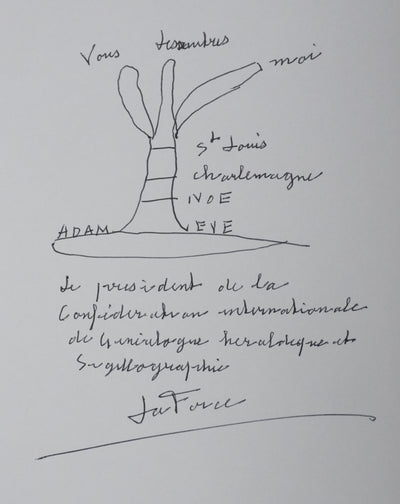 Vous les autres moi
St Louis
Charlemagne
NOE
ADAM EVE
Le président de la
Confédération internationale
de Généalogie heraldique et
Sigillographie
La Force